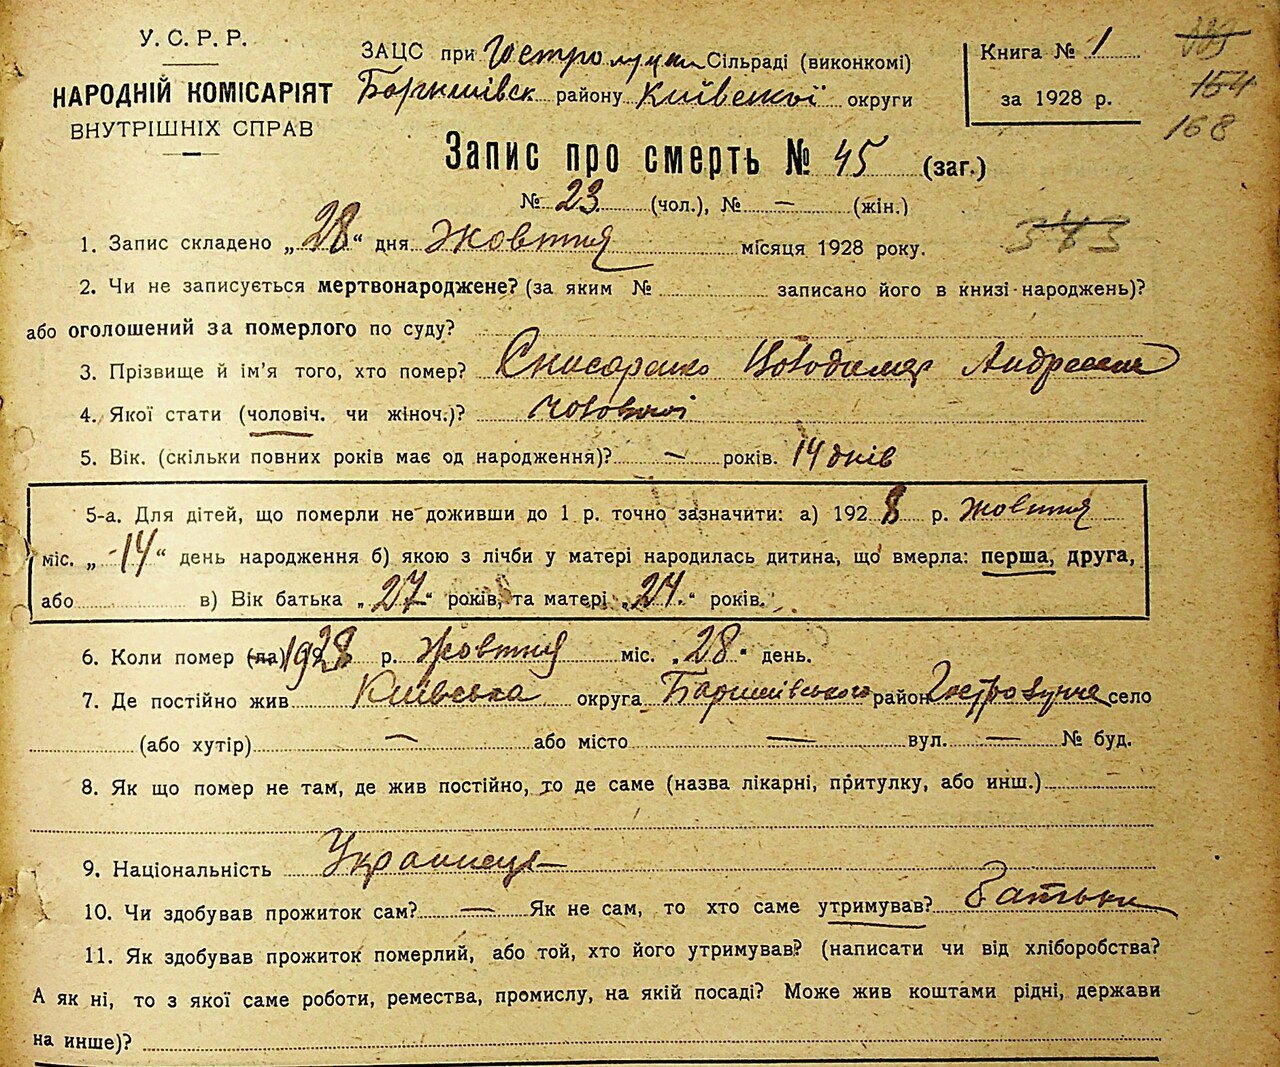 У. С. Р. Р.
НАРОДНІЙ КОМІСАРІЯТ
ВНУТРІШНІХ СПРАВ
ЗАЦС при Гостролуцькій Сільраді (виконкомі)
Баришівськ району Київської округи
Книга № 1
за 1928 р.
339
154
168
Запис про смерть № 45 (заг.)
№ 23 (чол.), № — (жін.)
343
1. Запис складено „28“ дня Жовтня місяця 1928 року.
2. Чи не записується мертвонароджене? (за яким № записано його в книзі народжень)?
або оголошений за померлого по суду?
3. Прізвище й ім’я того, хто помер? Володимир Андреевич
4. Якої стати (чоловіч. чи жіноч.)? чоловічої
5. Вік. (скільки повних років має од народження)? — років. 14 днів
5-а. Для дітей, що померли не доживши до 1 р. точно зазначити: а) 1928 р. жовтня
міс. „14“ день народження б) якою з лічби у матері народилась дитина, що вмерла: перша, друга,
або в) Вік батька „27“ років, та матері „24“ років.
6. Коли помер (ла) 1928 р. Жовтня міс. „28“ день.
7. Де постійно жив Київська округа Баришівського район Гостролучче село
(або хутір) — або місто — вул. — № буд.
8. Як що помер не там, де жив постійно, то де саме (назва лікарні, притулку, або инш.)
9. Національність Українець
10. Чи здобував прожиток сам? — Як не сам, то хто саме утримував? Батьки
11. Як здобував прожиток померлий, або той, хто його утримував? (написати чи від хліборобства?
А як ні, то з якої саме роботи, ремества, промислу, на якій посаді? Може жив коштами рідні, держави
на инше)?